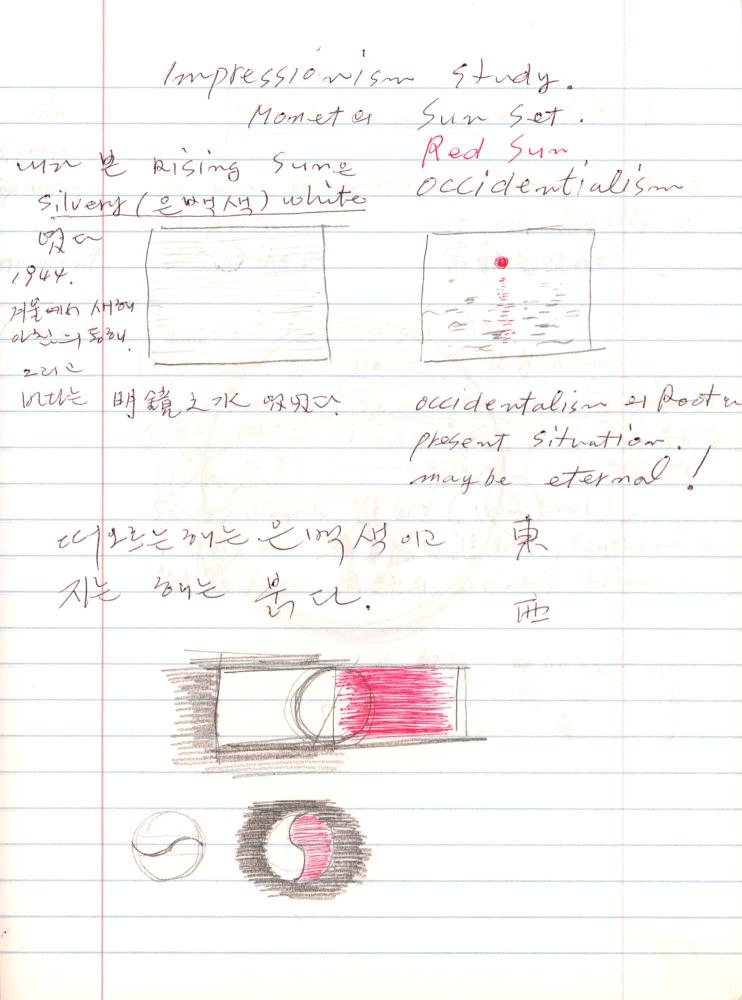 Impressionism Study.
Monet의 Sun Set.
Red Sun
Occidentialism
내가 본 Rising Sun은
Silvery (은백색) white
였다
1944.
겨울에서 새해
아침의 동해.
그리고
바다는 明鏡之水 였었다.
occidentalism의 Root
present situation.
may be eternal!
떠오르는 해는 은백색이고 東
지는 해는 붉다. 西